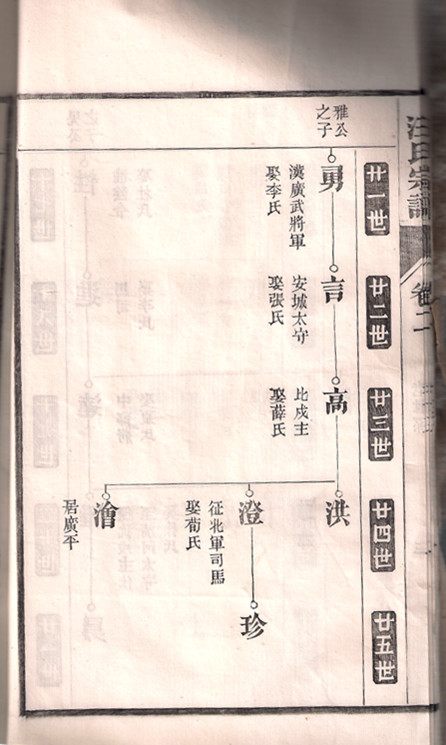 汪氏宗譜
卷二
廿一世
廿二世
廿三世
廿四世
廿五世
雅公
之子
勇
漢廣武將軍
娶李氏
言
安城太守
娶張氏
高
比戍主
娶薛氏
洪
澄
征北軍司馬
娶荀氏
珍
澮
居廣平